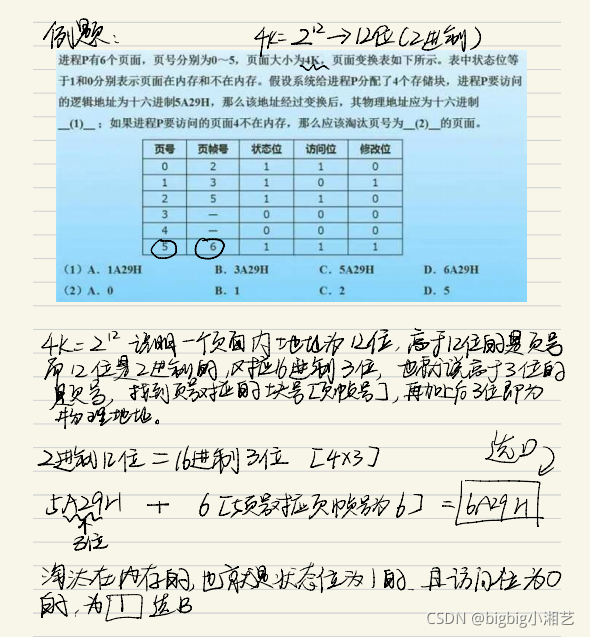 例题: 4K=2^12→12位(2进制)
进程P有6个页面，页号分别为0~5，页面大小为4K，页面变换表如下所示。表中状态位等
于1和0分别表示页面在内存和不在内存。假设系统给进程P分配了4个存储块，进程P要访问
的逻辑地址为十六进制5A29H，那么该地址经过变换后，其物理地址应为十六进制
__(1)__；如果进程P要访问的页面4不在内存，那么应该淘汰页号为__(2)__的页面。
页号 页帧号 状态位 访问位 修改位
0 2 1 1 0
1 3 1 0 1
2 5 1 1 0
3 — 0 0 0
4 — 0 0 0
5 6 1 1 1
(1) A. 1A29H B. 3A29H C. 5A29H D. 6A29H
(2) A. 0 B. 1 C. 2 D. 5
4K=2^12 说明一个页面内地址为12位，高于12位的是页号
而12位是2进制的，对应16进制3位，也就说高于3位的
是页号，找到页号对应的块号[页帧号]，再加上后3位即为
物理地址。
2进制12位=16进制3位 [4×3] 选D
5A29H + 6[5页号对应页帧号为6] = 6A29H
3位
淘汰在内存的，也就是状态位为1的，且访问位为0
的，为1 选B
CSDN @bigbig小湘艺